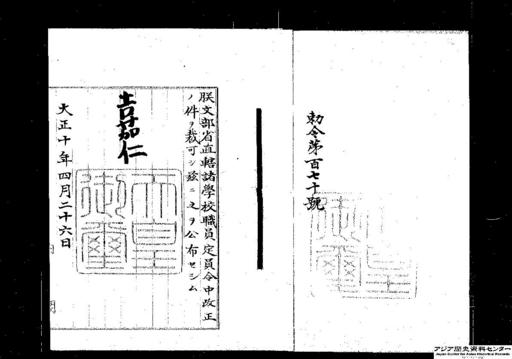 勅令第百七十號
朕文部省直轄諸學校職員定員令中改正
ノ件ヲ裁可シ玆ニ之ヲ公布セシム
嘉仁
天皇御璽
大正十年四月二十六日
アジア歴史資料センター
Japan Center for Asian Historical Records